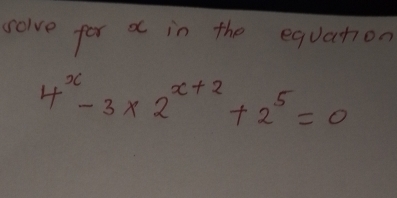 solve for x in the equation
4^x - 3 × 2^(x+2) + 2^5 = 0